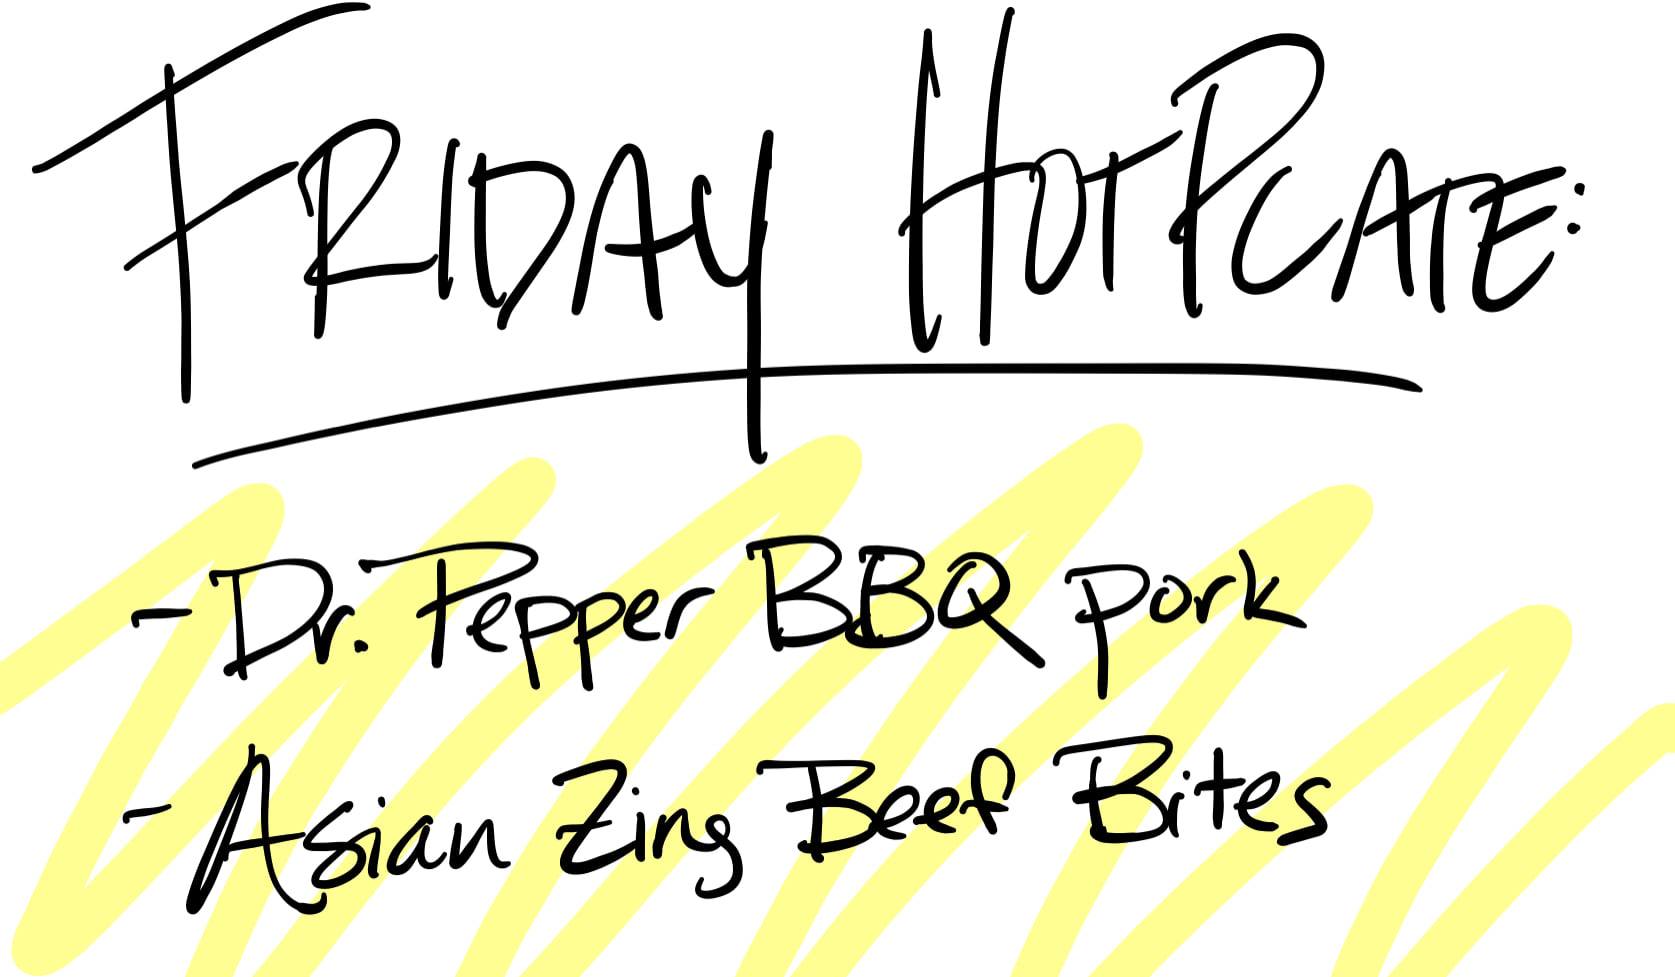 FRIDAY HOTPLATE:
- Dr. Pepper BBQ pork
- Asian Zing Beef Bites